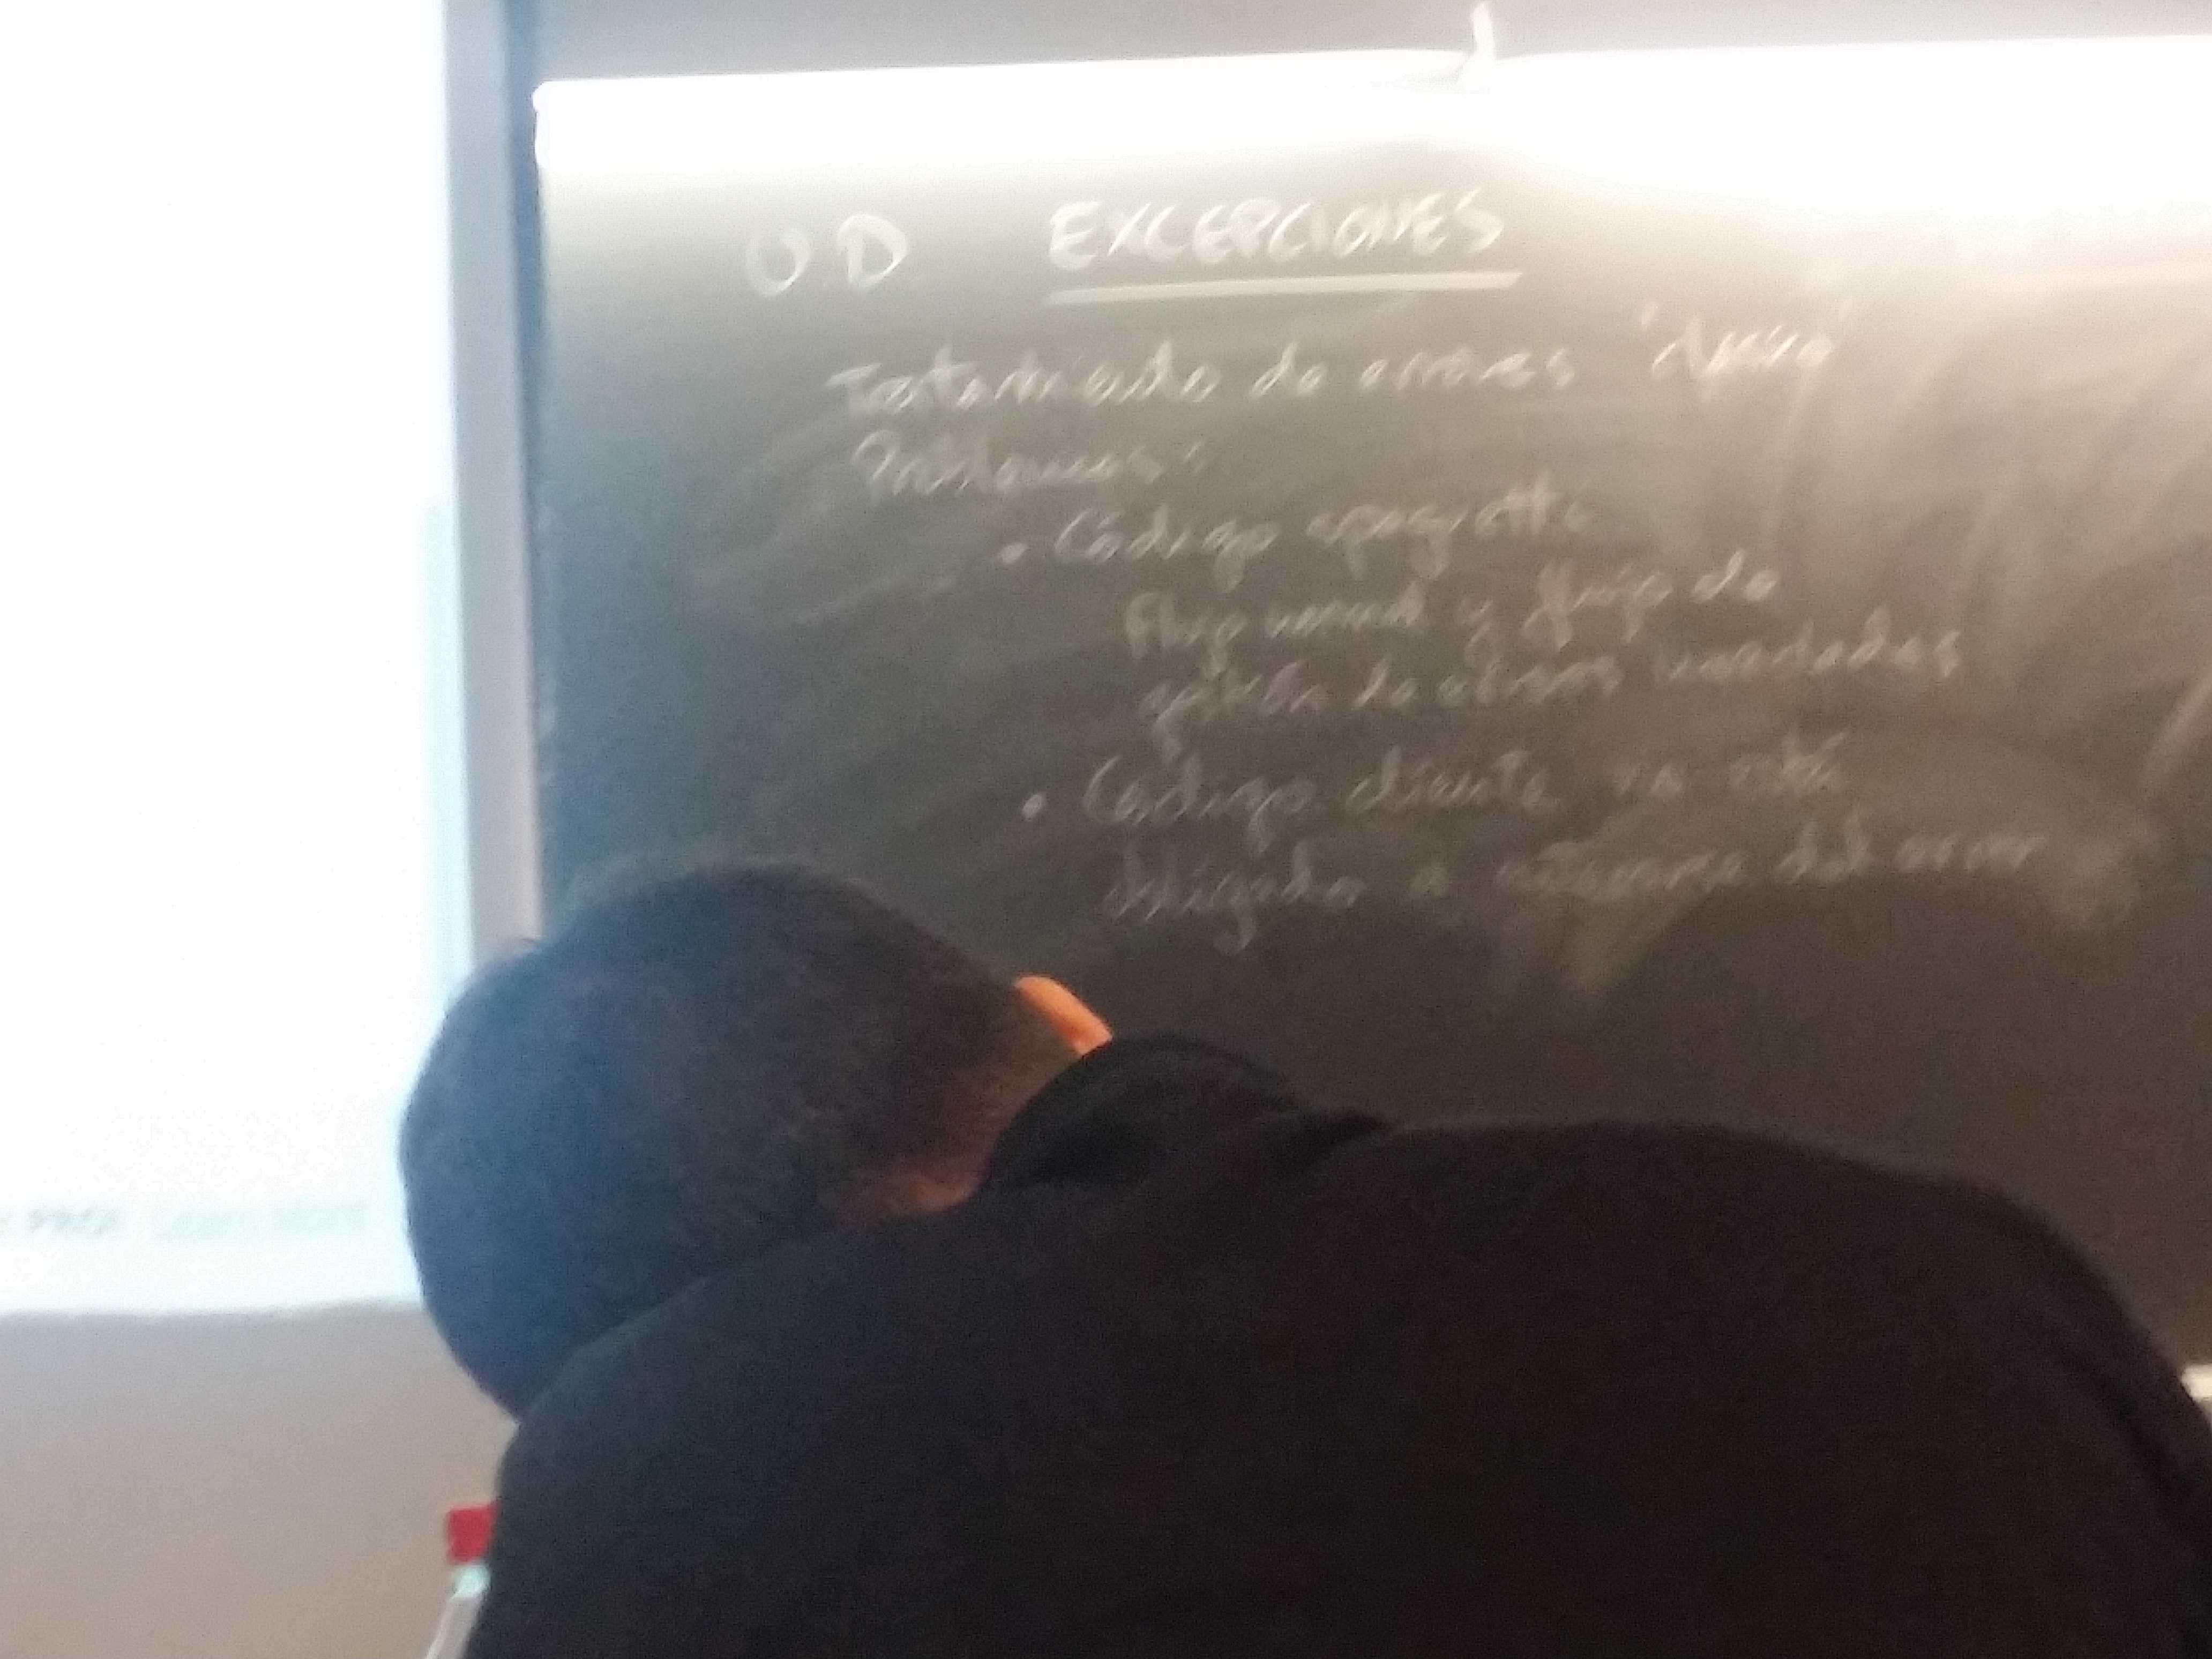 U.D EXCEPCIONES
Tratamiento de errores 'clásico'
Problemas:
• Código spaguetti
Flujo normal y flujo de
gestión de errores mezclados
• Código cliente no está
obligado a enterarse del error